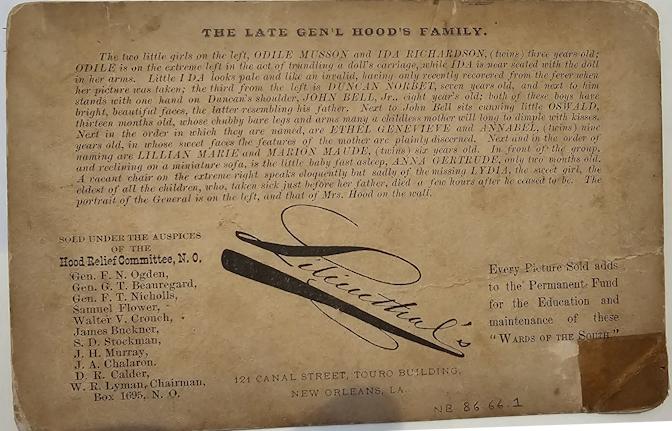 THE LATE GEN'L HOOD'S FAMILY.
The two little girls on the left, ODILE MUSSON and IDA RICHARDSON, (twins) three years old;
ODILE is on the extreme left in the act of trundling a doll's carriage, while IDA is near seated with the doll
in her arms. Little IDA looks pale and like an invalid, having only recently recovered from the fever when
her picture was taken; the third from the left is DUNCAN NORBET, seven years old, and next to him
stands with one hand on Duncan's shoulder, JOHN BELL, Jr., eight year's old; both of these boys have
bright, beautiful faces, the latter resembling his father. Next to John Bell sits cunning little OSWALD,
thirteen months old, whose chubby bare legs and arms many a childless mother will long to dimple with kisses.
Next in the order in which they are named, are ETHEL GENEVIEVE and ANNABEL, (twins) nine
years old, in whose sweet faces the features of the mother are plainly discerned. Next and in the order of
naming are LILLIAN MARIE and MARION MAUDE, (twins) six years old. In front of the group,
and reclining on a miniature sofa, is the little baby fast asleep, ANNA GERTRUDE, only two months old.
A vacant chair on the extreme right speaks eloquently but sadly of the missing LYDIA, the sweet girl, the
eldest of all the children, who, taken sick just before her father, died a few hours after he ceased to be. The
portrait of the General is on the left, and that of Mrs. Hood on the wall.
SOLD UNDER THE AUSPICES
OF THE
Hood Relief Committee, N. O.
Gen. F. N. Ogden,
Gen. G. T. Beauregard,
Gen. F. T. Nicholls,
Samuel Flower,
Walter V. Crouch,
James Buckner,
S. D. Stockman,
J. H. Murray,
J. A. Chalaron,
D. R. Calder,
W. R. Lyman, Chairman,
Box 1695, N. O.
Lilienthal's
121 CANAL STREET, TOURO BUILDING,
NEW ORLEANS, LA.
Every Picture Sold adds
to the Permanent Fund
for the Education and
maintenance of these
"WARDS OF THE SOUTH"
NB 86 66.1